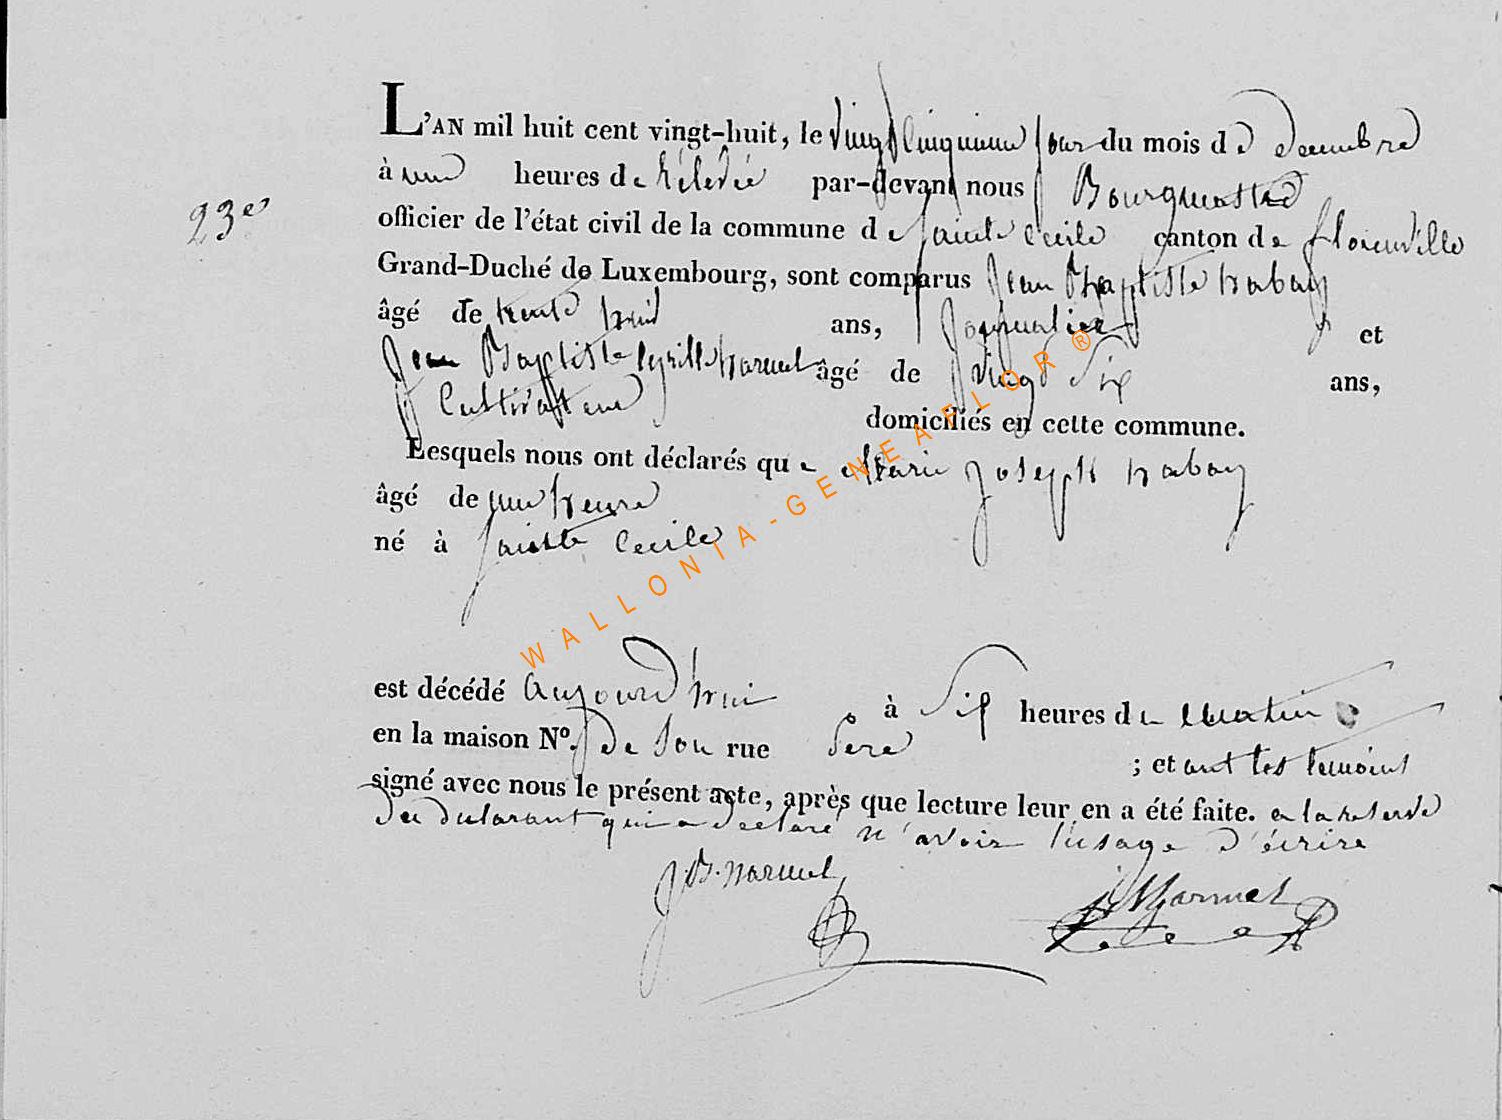 L'AN mil huit cent vingt-huit, le vingt cinquieme jour du mois de decembre
à une heures de rélevée par-devant nous Bourguemestre
23e
officier de l'état civil de la commune de Sainte Cecile canton de florenville
Grand-Duché de Luxembourg, sont comparus Jean Baptiste habay
âgé de trente huit ans, Journalier et
Jean Baptiste Cyrille harmel âgé de vingt Six ans,
Cultivateur domiciliés en cette commune.
Lesquels nous ont déclarés que Marie Joseph habay
âgé de une heure
né à Sainte Cecile
est décédé aujourd'hui à Six heures du matin
en la maison No. de Son rue Père ; et ont les temoins
signé avec nous le présent acte, après que lecture leur en a été faite. a la reserve
du declarant qui a declaré n'avoir l'usage d'écrire
J.B. harmel
WALLONIA-GENEAFLOR®